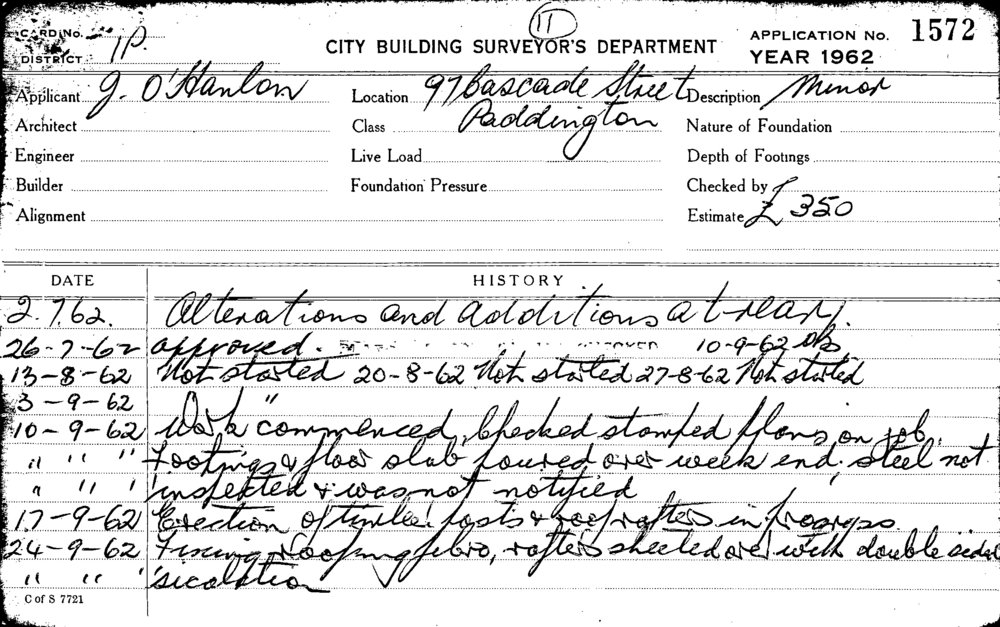 11
CARD No.
11P.
CITY BUILDING SURVEYOR'S DEPARTMENT
APPLICATION No. 1572
DISTRICT
YEAR 1962
Applicant J. O'Hanlon
Location 97 Cascade Street
Description Minor
Architect
Class Paddington
Nature of Foundation
Engineer
Live Load
Depth of Footings
Builder
Foundation Pressure
Checked by
Alignment
Estimate £ 350
DATE HISTORY
2.7.62. Alterations and additions at rear.
26-7-62 approved. 10-9-62
13-8-62 Not started 20-8-62 Not started 27-8-62 Not started
3-9-62 "
10-9-62 Work commenced, Checked stamped plans on job.
" " " Footings & floor slab poured over week end. steel not
" " " inspected & was not notified
17-9-62 Erection of timber posts & roof rafters in progress
24-9-62 Fixing roofing fibro, rafters sheeted over with double sided
" " " sisalation
C of S 7721